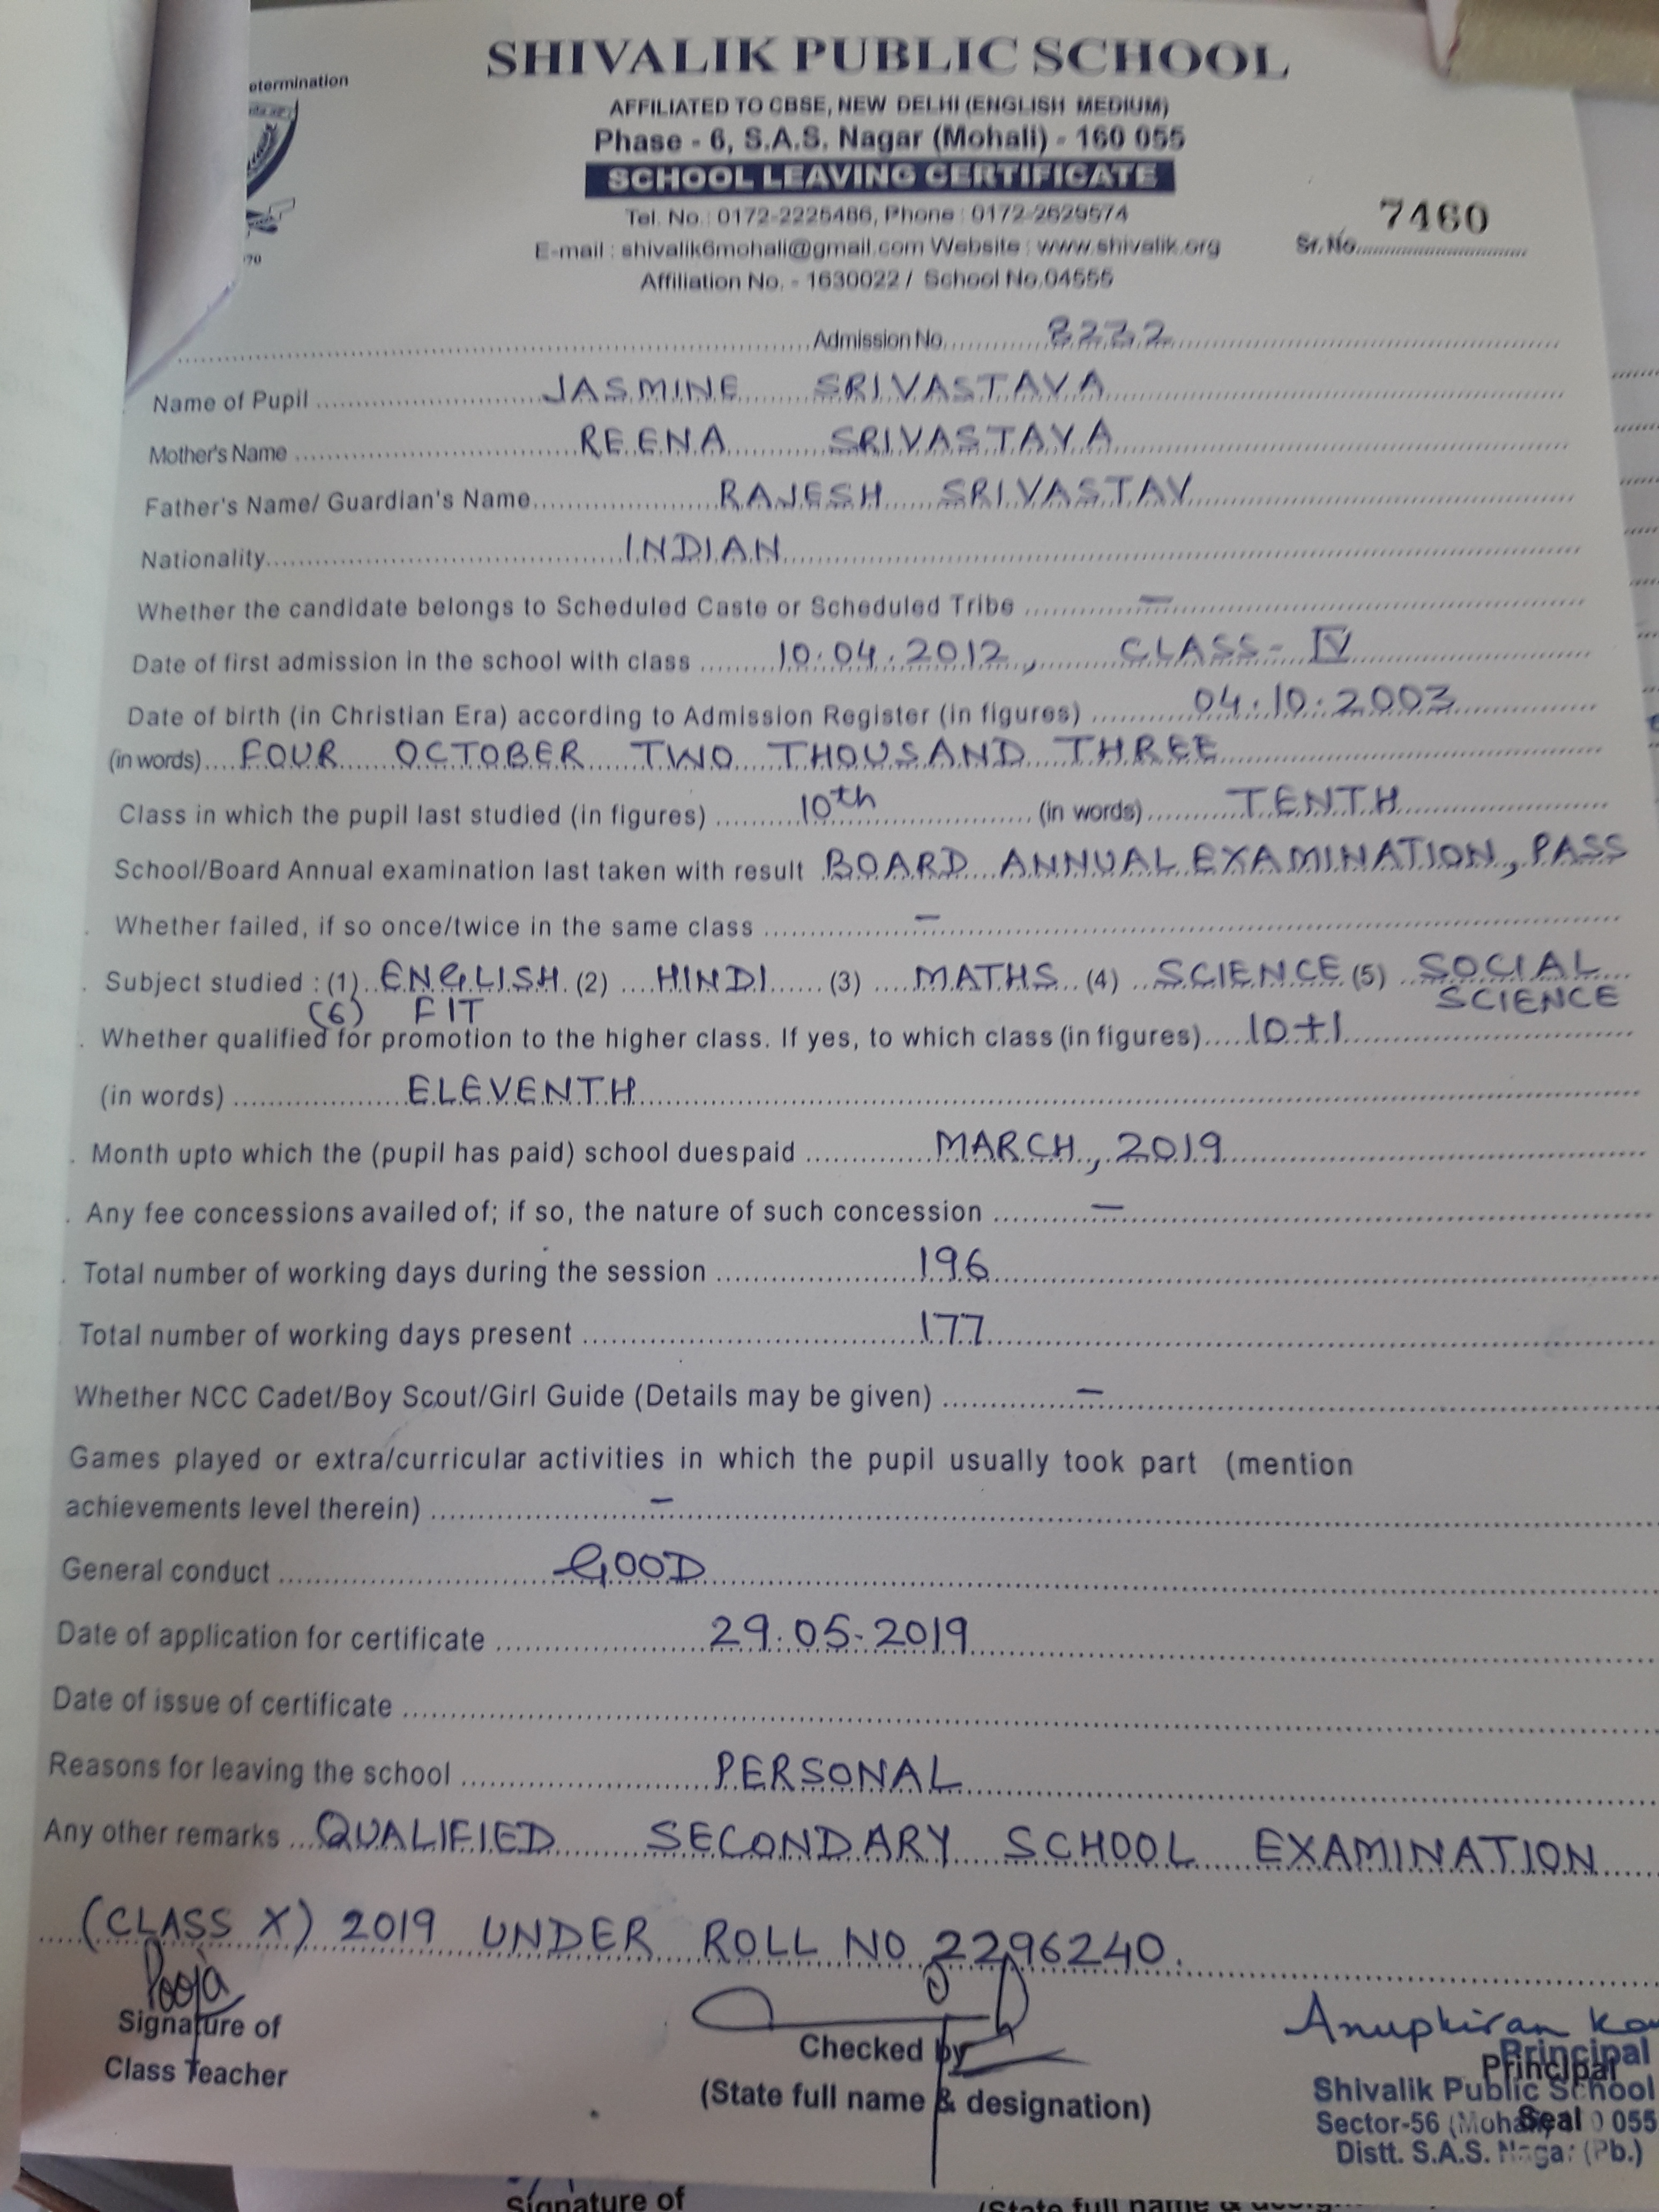 SHIVALIK PUBLIC SCHOOL
etermination
AFFILIATED TO CBSE, NEW DELHI (ENGLISH MEDIUM)
Phase - 6, S.A.S. Nagar (Mohali) - 160 055
SCHOOL LEAVING CERTIFICATE
Tel. No.: 0172-2225486, Phone : 0172-2629574
7460
E-mail : shivalik6mohali@gmail.com Website : www.shivalik.org
Sr. No.
70
Affiliation No. - 1630022 / School No.04555
Admission No. 8232
Name of Pupil JASMINE SRIVASTAVA
Mother's Name REENA SRIVASTAVA
Father's Name/ Guardian's Name RAJESH SRIVASTAV
Nationality INDIAN
Whether the candidate belongs to Scheduled Caste or Scheduled Tribe —
Date of first admission in the school with class 10.04.2012, CLASS- IV
Date of birth (in Christian Era) according to Admission Register (in figures) 04.10.2003
(in words) FOUR OCTOBER TWO THOUSAND THREE
Class in which the pupil last studied (in figures) 10th (in words) TENTH
School/Board Annual examination last taken with result BOARD ANNUAL EXAMINATION, PASS
Whether failed, if so once/twice in the same class —
Subject studied : (1) ENGLISH (2) HINDI (3) MATHS (4) SCIENCE (5) SOCIAL SCIENCE
(6) FIT
Whether qualified for promotion to the higher class. If yes, to which class (in figures) 10+1
(in words) ELEVENTH
Month upto which the (pupil has paid) school duespaid MARCH, 2019
Any fee concessions availed of; if so, the nature of such concession —
Total number of working days during the session 196
Total number of working days present 177
Whether NCC Cadet/Boy Scout/Girl Guide (Details may be given) —
Games played or extra/curricular activities in which the pupil usually took part (mention
achievements level therein) —
General conduct GOOD
Date of application for certificate 29.05-2019
Date of issue of certificate
Reasons for leaving the school PERSONAL
Any other remarks QUALIFIED SECONDARY SCHOOL EXAMINATION
(CLASS X) 2019 UNDER ROLL NO 2296240.
Pooja
Signature of
Class Teacher
Checked by
(State full name & designation)
Anupkiran
Principal
Principal
Shivalik Public School
Seal
Sector-56 (Mohali) 055
Distt. S.A.S. Nagar (Pb.)
Signature of
(State full name &